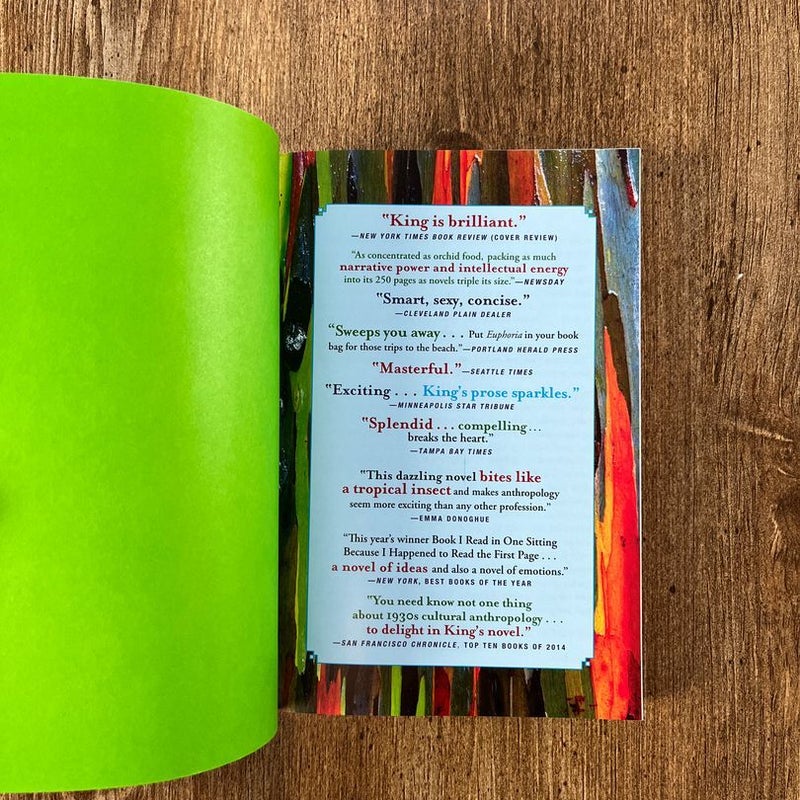 "King is brilliant."
—NEW YORK TIMES BOOK REVIEW (COVER REVIEW)
"As concentrated as orchid food, packing as much
narrative power and intellectual energy
into its 250 pages as novels triple its size."—NEWSDAY
"Smart, sexy, concise."
—CLEVELAND PLAIN DEALER
"Sweeps you away . . . Put Euphoria in your book
bag for those trips to the beach."—PORTLAND HERALD PRESS
"Masterful."—SEATTLE TIMES
"Exciting . . . King's prose sparkles."
—MINNEAPOLIS STAR TRIBUNE
"Splendid . . . compelling . . .
breaks the heart."
—TAMPA BAY TIMES
"This dazzling novel bites like
a tropical insect and makes anthropology
seem more exciting than any other profession."
—EMMA DONOGHUE
"This year's winner Book I Read in One Sitting
Because I Happened to Read the First Page . . .
a novel of ideas and also a novel of emotions."
—NEW YORK, BEST BOOKS OF THE YEAR
"You need know not one thing
about 1930s cultural anthropology . . .
to delight in King's novel."
—SAN FRANCISCO CHRONICLE, TOP TEN BOOKS OF 2014